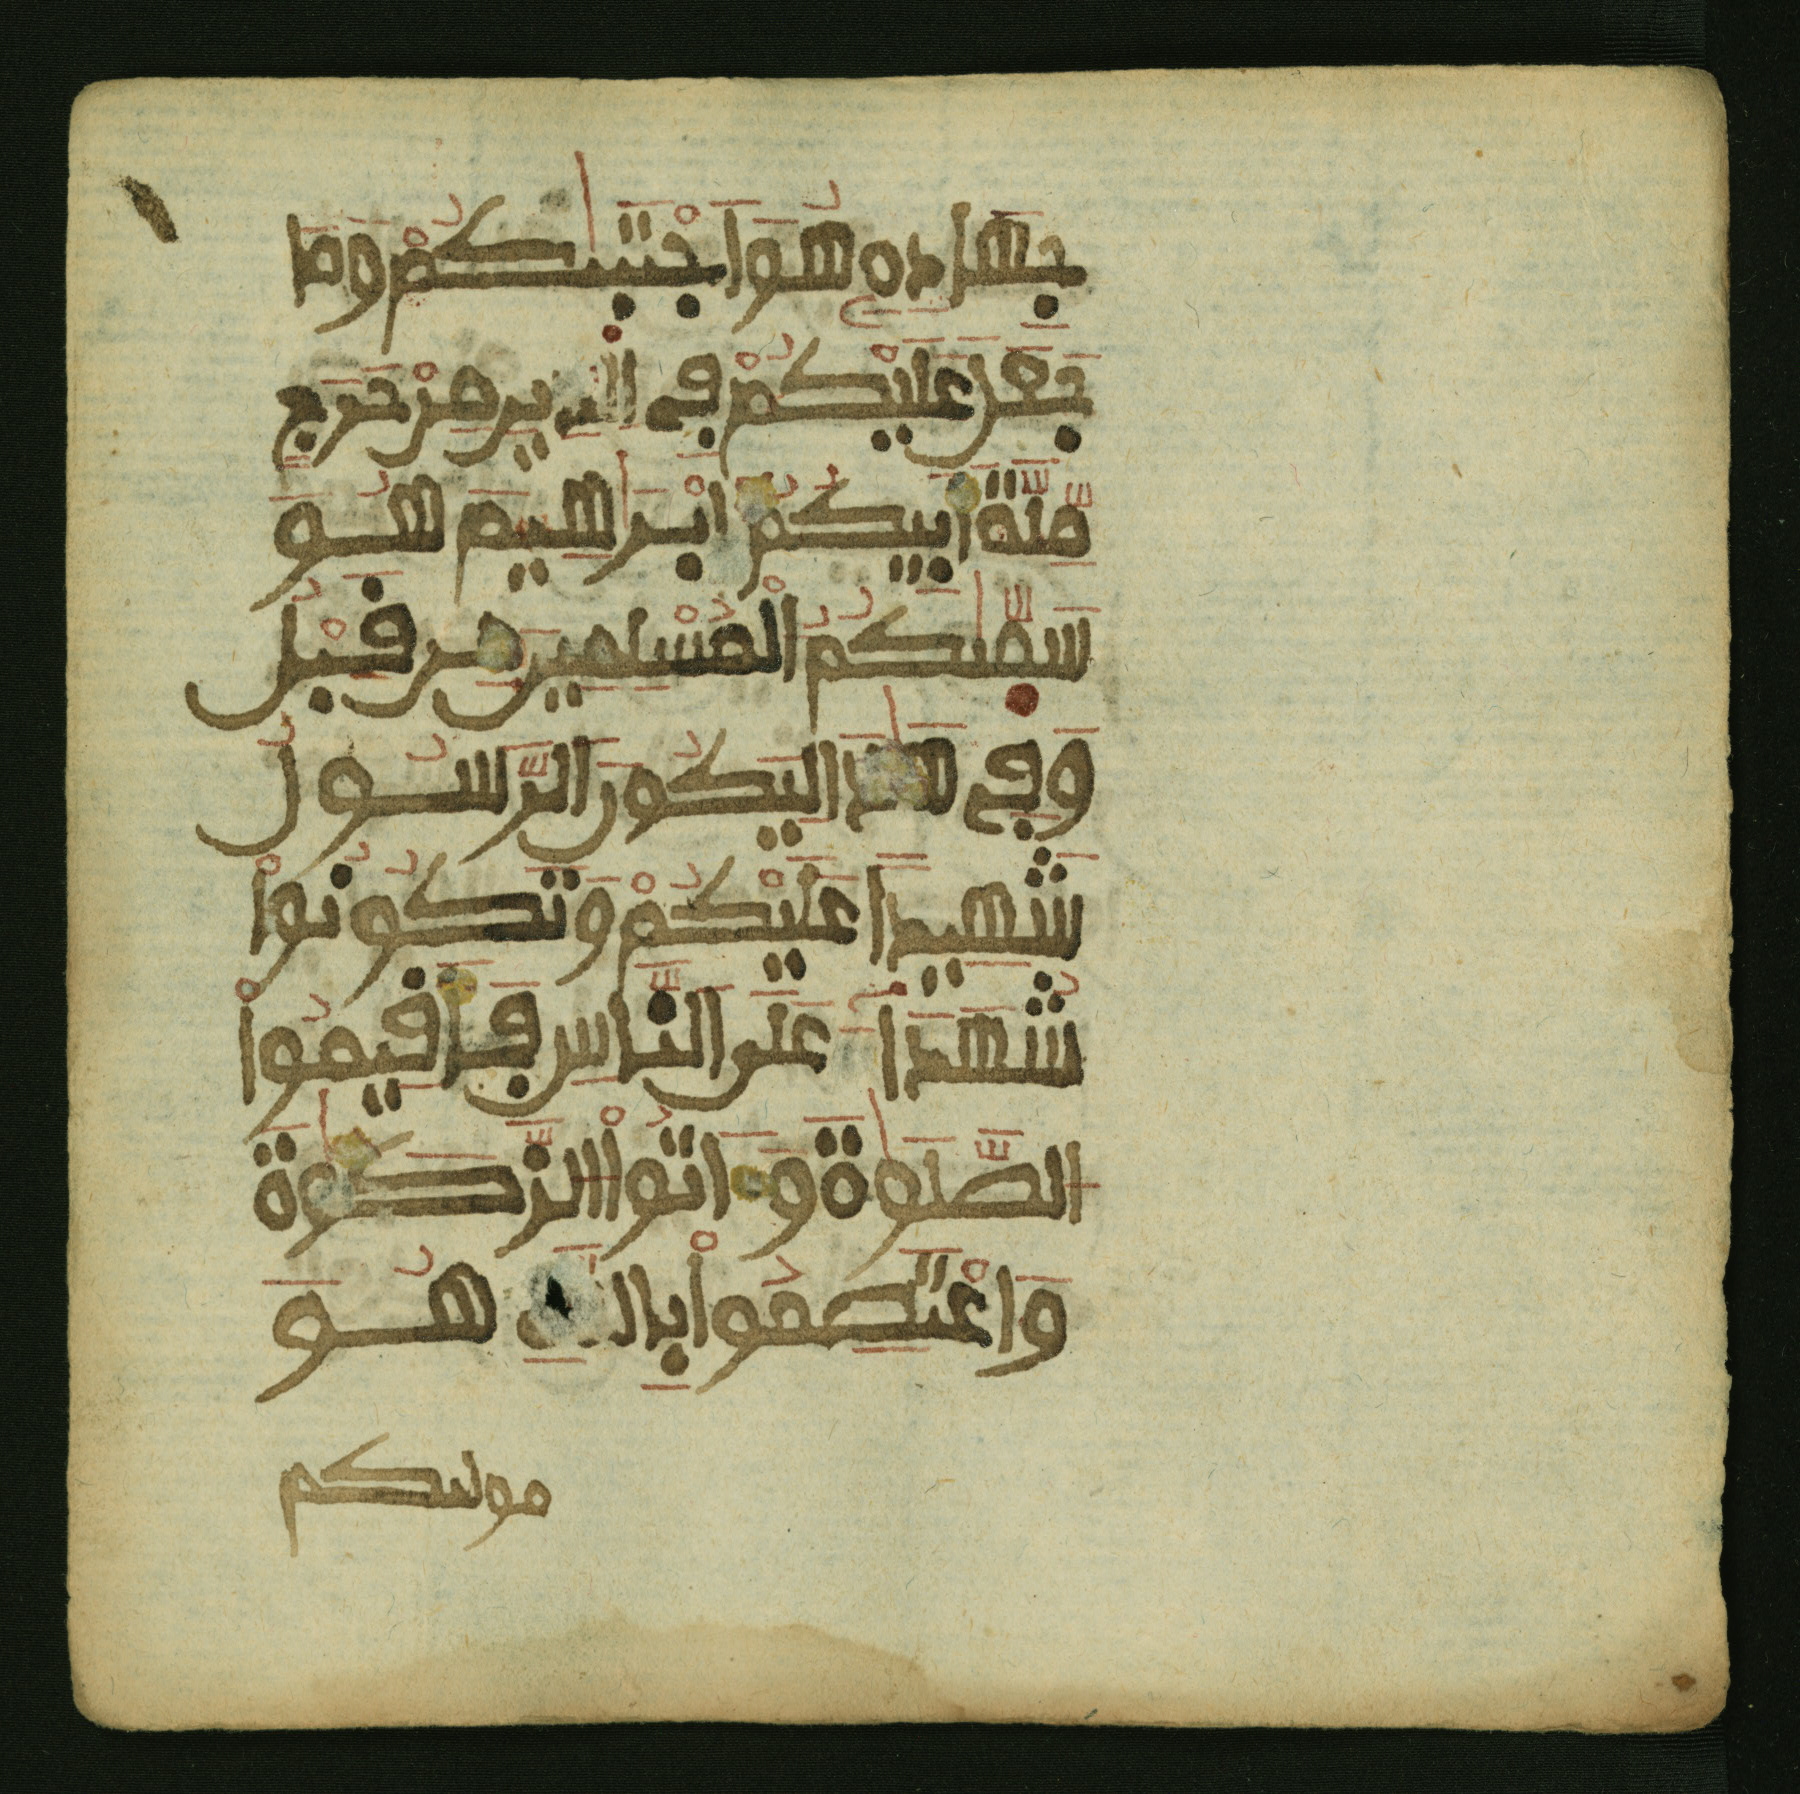 جِهَادِهِ هُوَ اَجْتَبَىٰكُمْ وَمَا
جَعَلَ عَلَيْكُمْ فِي الدِّينِ مِنْ حَرَجٍ
مِّلَّةَ أَبِيكُمُ إِبْرَاهِيمَ هُوَ
سَمَّىٰكُمُ الْمُسْلِمِينَ مِن قَبْلُ
وَفِي هَٰذَا لِيَكُونَ الرَّسُولُ
شَهِيدًا عَلَيْكُمْ وَتَكُونُواْ
شُهَدَآءَ عَلَى النَّاسِ فَأَقِيمُواْ
الصَّلَوٰةَ وَءَاتُواْ الزَّكَوٰةَ
وَاعْتَصِمُواْ بِاللَّهِ هُوَ
موليكم